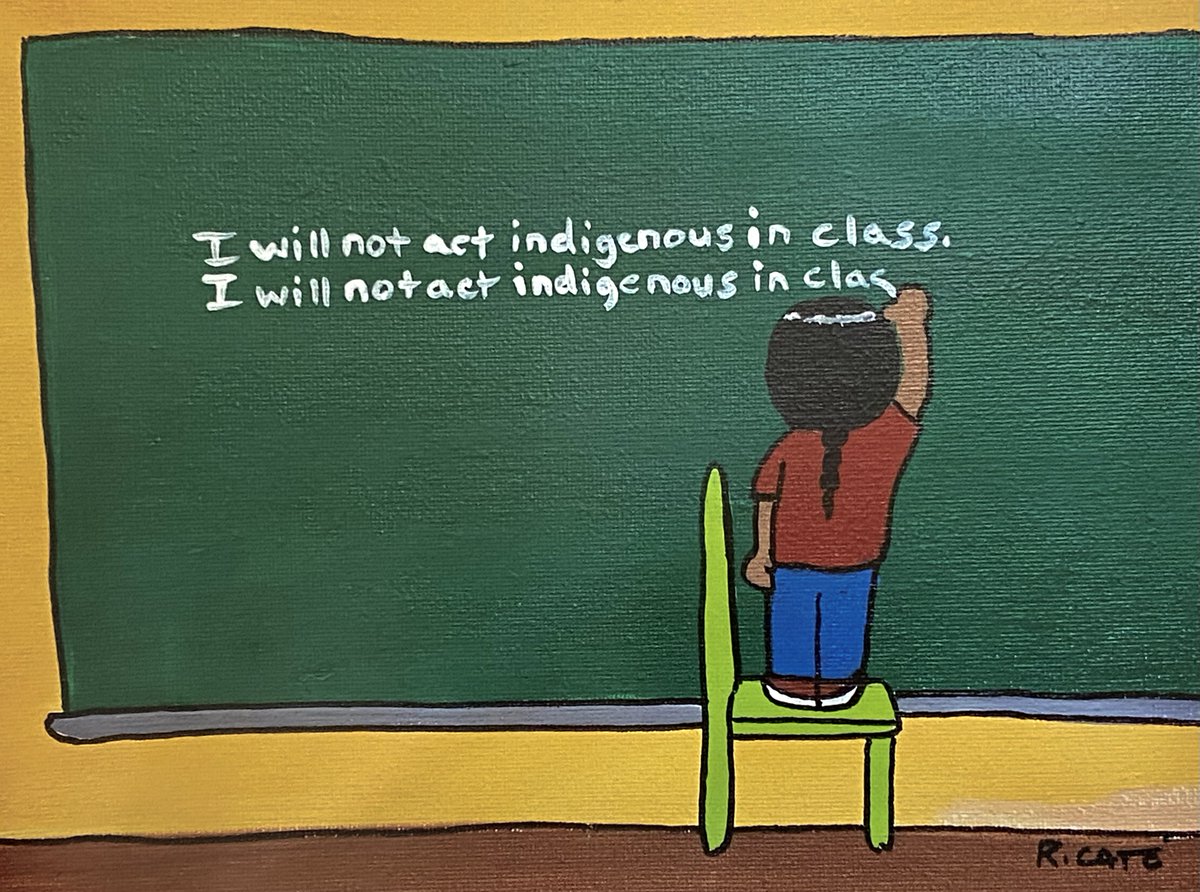 I will not act indigenous in class.
I will not act indigenous in clas
R. CATE'